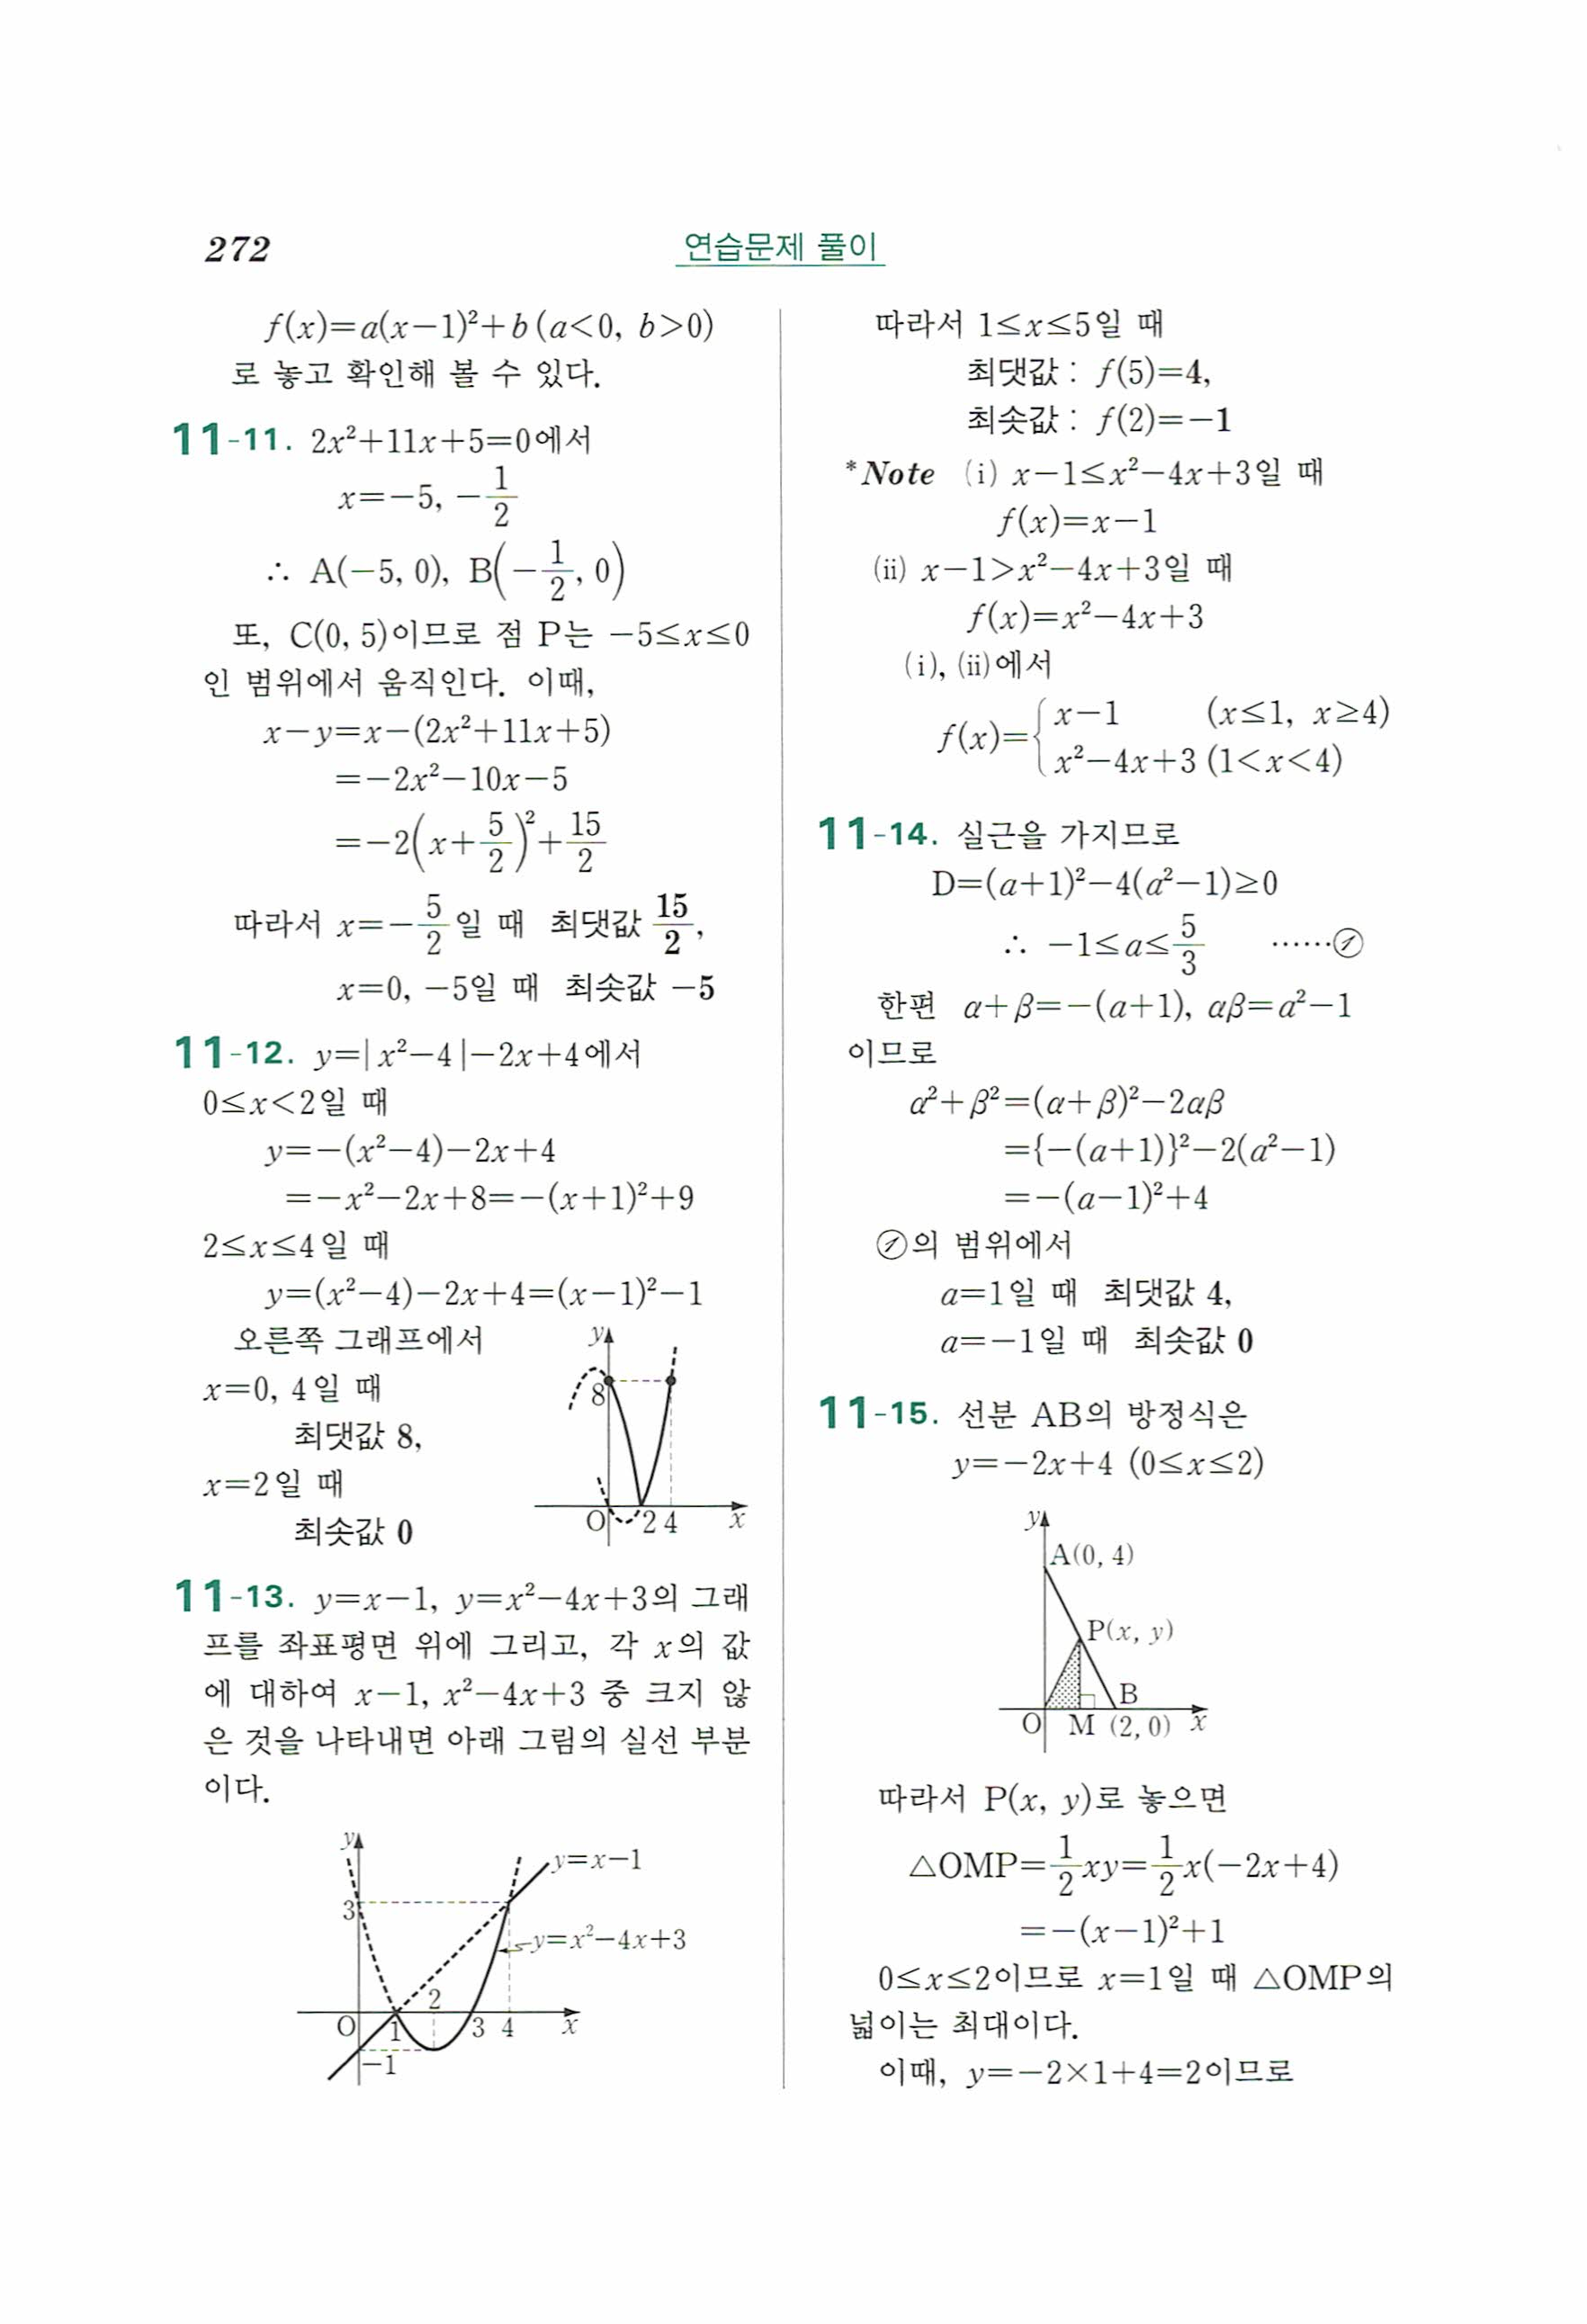 272
연습문제 풀이
f(x)=a(x−1)²+b (a<0, b>0)
로 놓고 확인해 볼 수 있다.
11-11. 2x²+11x+5=0에서
x=−5, −1/2
∴ A(−5, 0), B(−1/2, 0)
또, C(0, 5)이므로 점 P는 −5≤x≤0
인 범위에서 움직인다. 이때,
x−y=x−(2x²+11x+5)
=−2x²−10x−5
=−2(x+5/2)²+15/2
따라서 x=−5/2일 때 최댓값 15/2,
x=0, −5일 때 최솟값 −5
11-12. y=|x²−4|−2x+4에서
0≤x<2일 때
y=−(x²−4)−2x+4
=−x²−2x+8=−(x+1)²+9
2≤x≤4일 때
y=(x²−4)−2x+4=(x−1)²−1
오른쪽 그래프에서
x=0, 4일 때
최댓값 8,
x=2일 때
최솟값 0
y
8
O 2 4 x
11-13. y=x−1, y=x²−4x+3의 그래
프를 좌표평면 위에 그리고, 각 x의 값
에 대하여 x−1, x²−4x+3 중 크지 않
은 것을 나타내면 아래 그림의 실선 부분
이다.
y
y=x−1
3
y=x²−4x+3
2
O 1 3 4 x
−1
따라서 1≤x≤5일 때
최댓값 : f(5)=4,
최솟값 : f(2)=−1
*Note (i) x−1≤x²−4x+3일 때
f(x)=x−1
(ii) x−1>x²−4x+3일 때
f(x)=x²−4x+3
(i), (ii)에서
f(x)={x−1 (x≤1, x≥4)
x²−4x+3 (1<x<4)
11-14. 실근을 가지므로
D=(a+1)²−4(a²−1)≥0
∴ −1≤a≤5/3 ……㉠
한편 α+β=−(a+1), αβ=a²−1
이므로
α²+β²=(α+β)²−2αβ
={−(a+1)}²−2(a²−1)
=−(a−1)²+4
㉠의 범위에서
a=1일 때 최댓값 4,
a=−1일 때 최솟값 0
11-15. 선분 AB의 방정식은
y=−2x+4 (0≤x≤2)
y
A(0, 4)
P(x, y)
B
O M (2, 0) x
따라서 P(x, y)로 놓으면
△OMP=1/2xy=1/2x(−2x+4)
=−(x−1)²+1
0≤x≤2이므로 x=1일 때 △OMP의
넓이는 최대이다.
이때, y=−2×1+4=2이므로